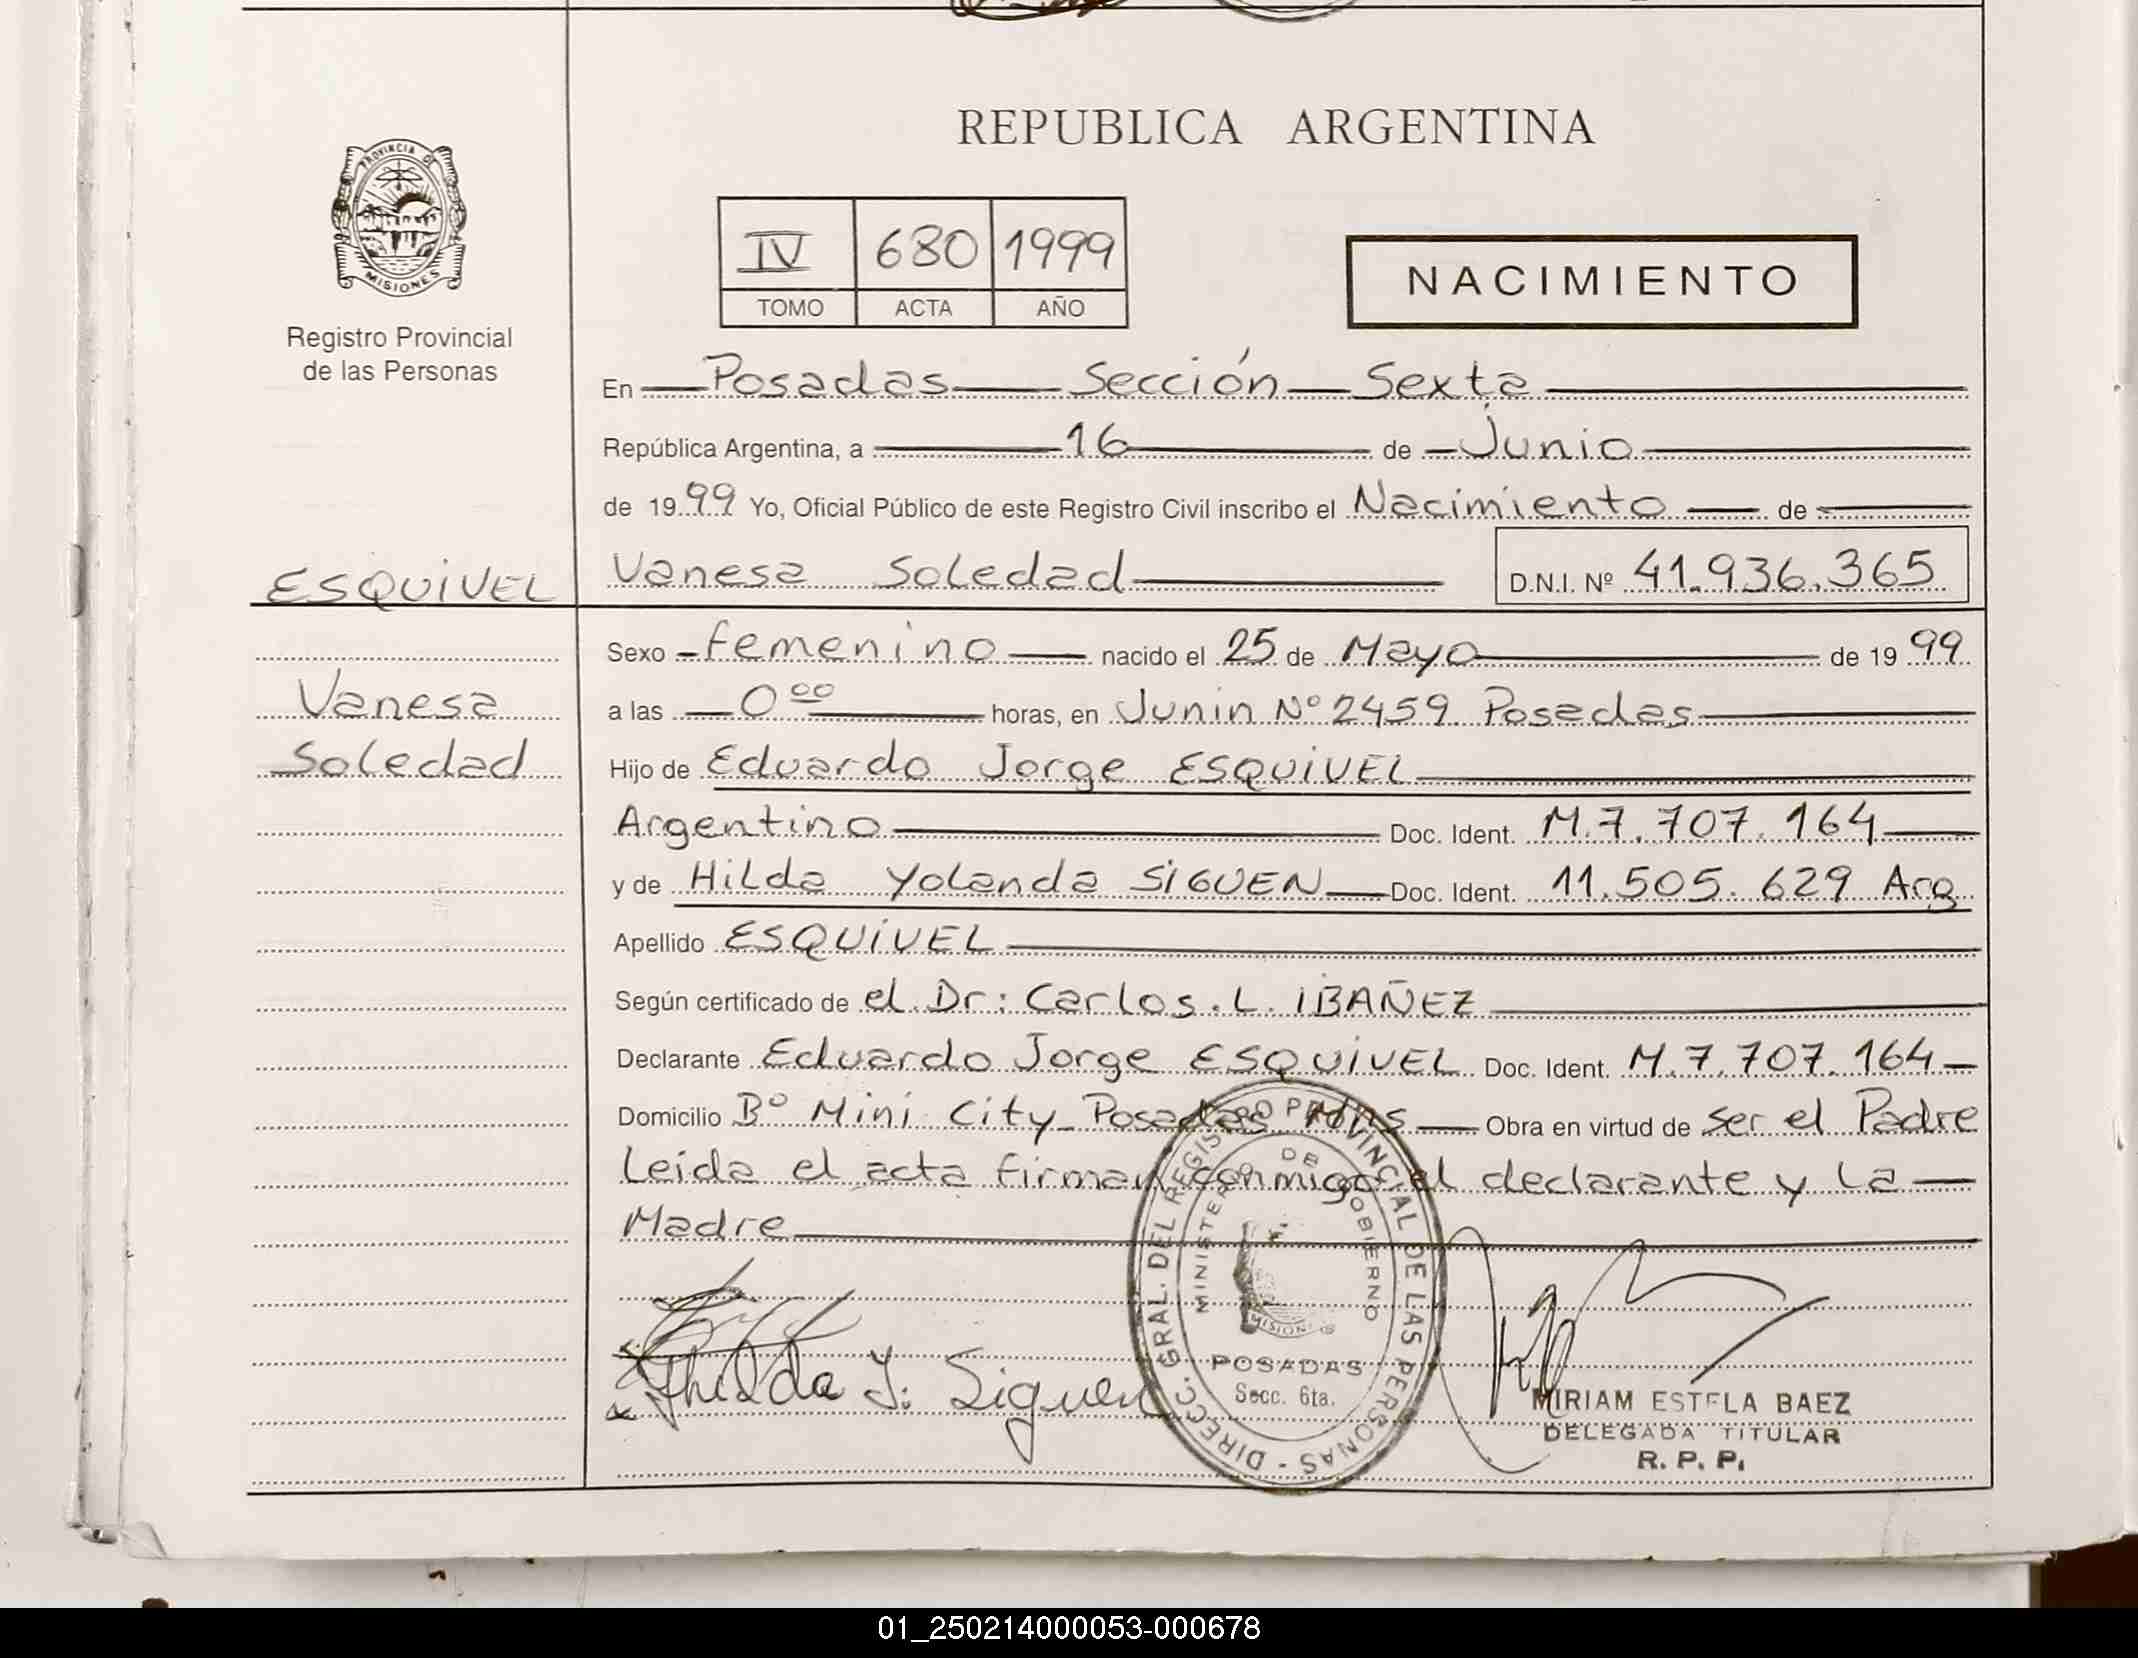 REPUBLICA ARGENTINA
PROVINCIA DE
MISIONES
Registro Provincial
de las Personas
IV 680 1999
TOMO ACTA AÑO
NACIMIENTO
En Posadas Sección Sexta
República Argentina, a 16 de Junio
de 1999 Yo, Oficial Público de este Registro Civil inscribo el Nacimiento de
ESQUIVEL
Vanesa Soledad D.N.I. Nº 41.936.365
Sexo femenino nacido el 25 de Mayo de 1999
Vanesa
Soledad
a las 0 00 horas, en Junin Nº 2459 Posadas
Hijo de Eduardo Jorge ESQUIVEL
Argentino Doc. Ident. M.7.707.164
y de Hilda Yolanda SIGUEN Doc. Ident. 11.505.629 Arg
Apellido ESQUIVEL
Según certificado de el Dr: Carlos. L. IBAÑEZ
Declarante Eduardo Jorge ESQUIVEL Doc. Ident. M.7.707.164
Domicilio Bº Mini City Posadas Mns Obra en virtud de ser el Padre
Leida el acta firman conmigo el declarante y la
Madre
DIRECC. GRAL. DEL REGISTRO PROVINCIAL DE LAS PERSONAS -
MINISTERIO DE GOBIERNO
MISIONES
POSADAS
Secc. 6ta.
Hilda Y. Siguen
MIRIAM ESTELA BAEZ
DELEGADA TITULAR
R. P. P.
01_250214000053-000678